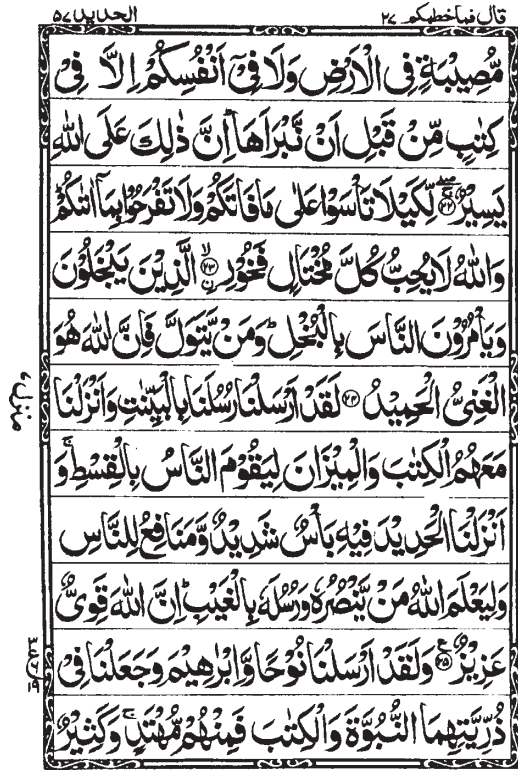 قال فما خطبكم ٢٧
الحديد ٥٧
مُّصِيْبَةٍ فِى الْاَرْضِ وَلَا فِىْۤ اَنْفُسِكُمْ اِلَّا فِىْ
كِتٰبٍ مِّنْ قَبْلِ اَنْ نَّبْرَاَهَاؕ اِنَّ ذٰلِكَ عَلَى اللّٰهِ
يَسِيْرٌ ۚۖ‏﴿۲۲﴾ لِّكَيْلَا تَاْسَوْا عَلٰى مَا فَاتَكُمْ وَلَا تَفْرَحُوْا بِمَاۤ اٰتٰٮكُمْؕ
وَاللّٰهُ لَا يُحِبُّ كُلَّ مُخْتَالٍ فَخُوْرِ ۙ‏﴿۲۳﴾ اۨلَّذِيْنَ يَبْخَلُوْنَ
وَيَاْمُرُوْنَ النَّاسَ بِالْبُخْلِؕ وَمَنْ يَّتَوَلَّ فَاِنَّ اللّٰهَ هُوَ
الْغَنِىُّ الْحَمِيْدُ ﴿۲۴﴾ لَقَدْ اَرْسَلْنَا رُسُلَنَا بِالْبَيِّنٰتِ وَاَنْزَلْنَا
مَعَهُمُ الْكِتٰبَ وَالْمِيْزَانَ لِيَقُوْمَ النَّاسُ بِالْقِسْطِۚ وَ
اَنْزَلْنَا الْحَدِيْدَ فِيْهِ بَاْسٌ شَدِيْدٌ وَّمَنَافِعُ لِلنَّاسِ
وَلِيَعْلَمَ اللّٰهُ مَنْ يَّنْصُرُهٗ وَرُسُلَهٗ بِالْغَيْبِؕ اِنَّ اللّٰهَ قَوِىٌّ
عَزِيْزٌ ﴿۲۵﴾ وَلَقَدْ اَرْسَلْنَا نُوْحًا وَّاِبْرٰهِيْمَ وَجَعَلْنَا فِىْ
ذُرِّيَّتِهِمَا النُّبُوَّةَ وَالْكِتٰبَ فَمِنْهُمْ مُّهْتَدٍۚ وَكَثِيْرٌ
منزل